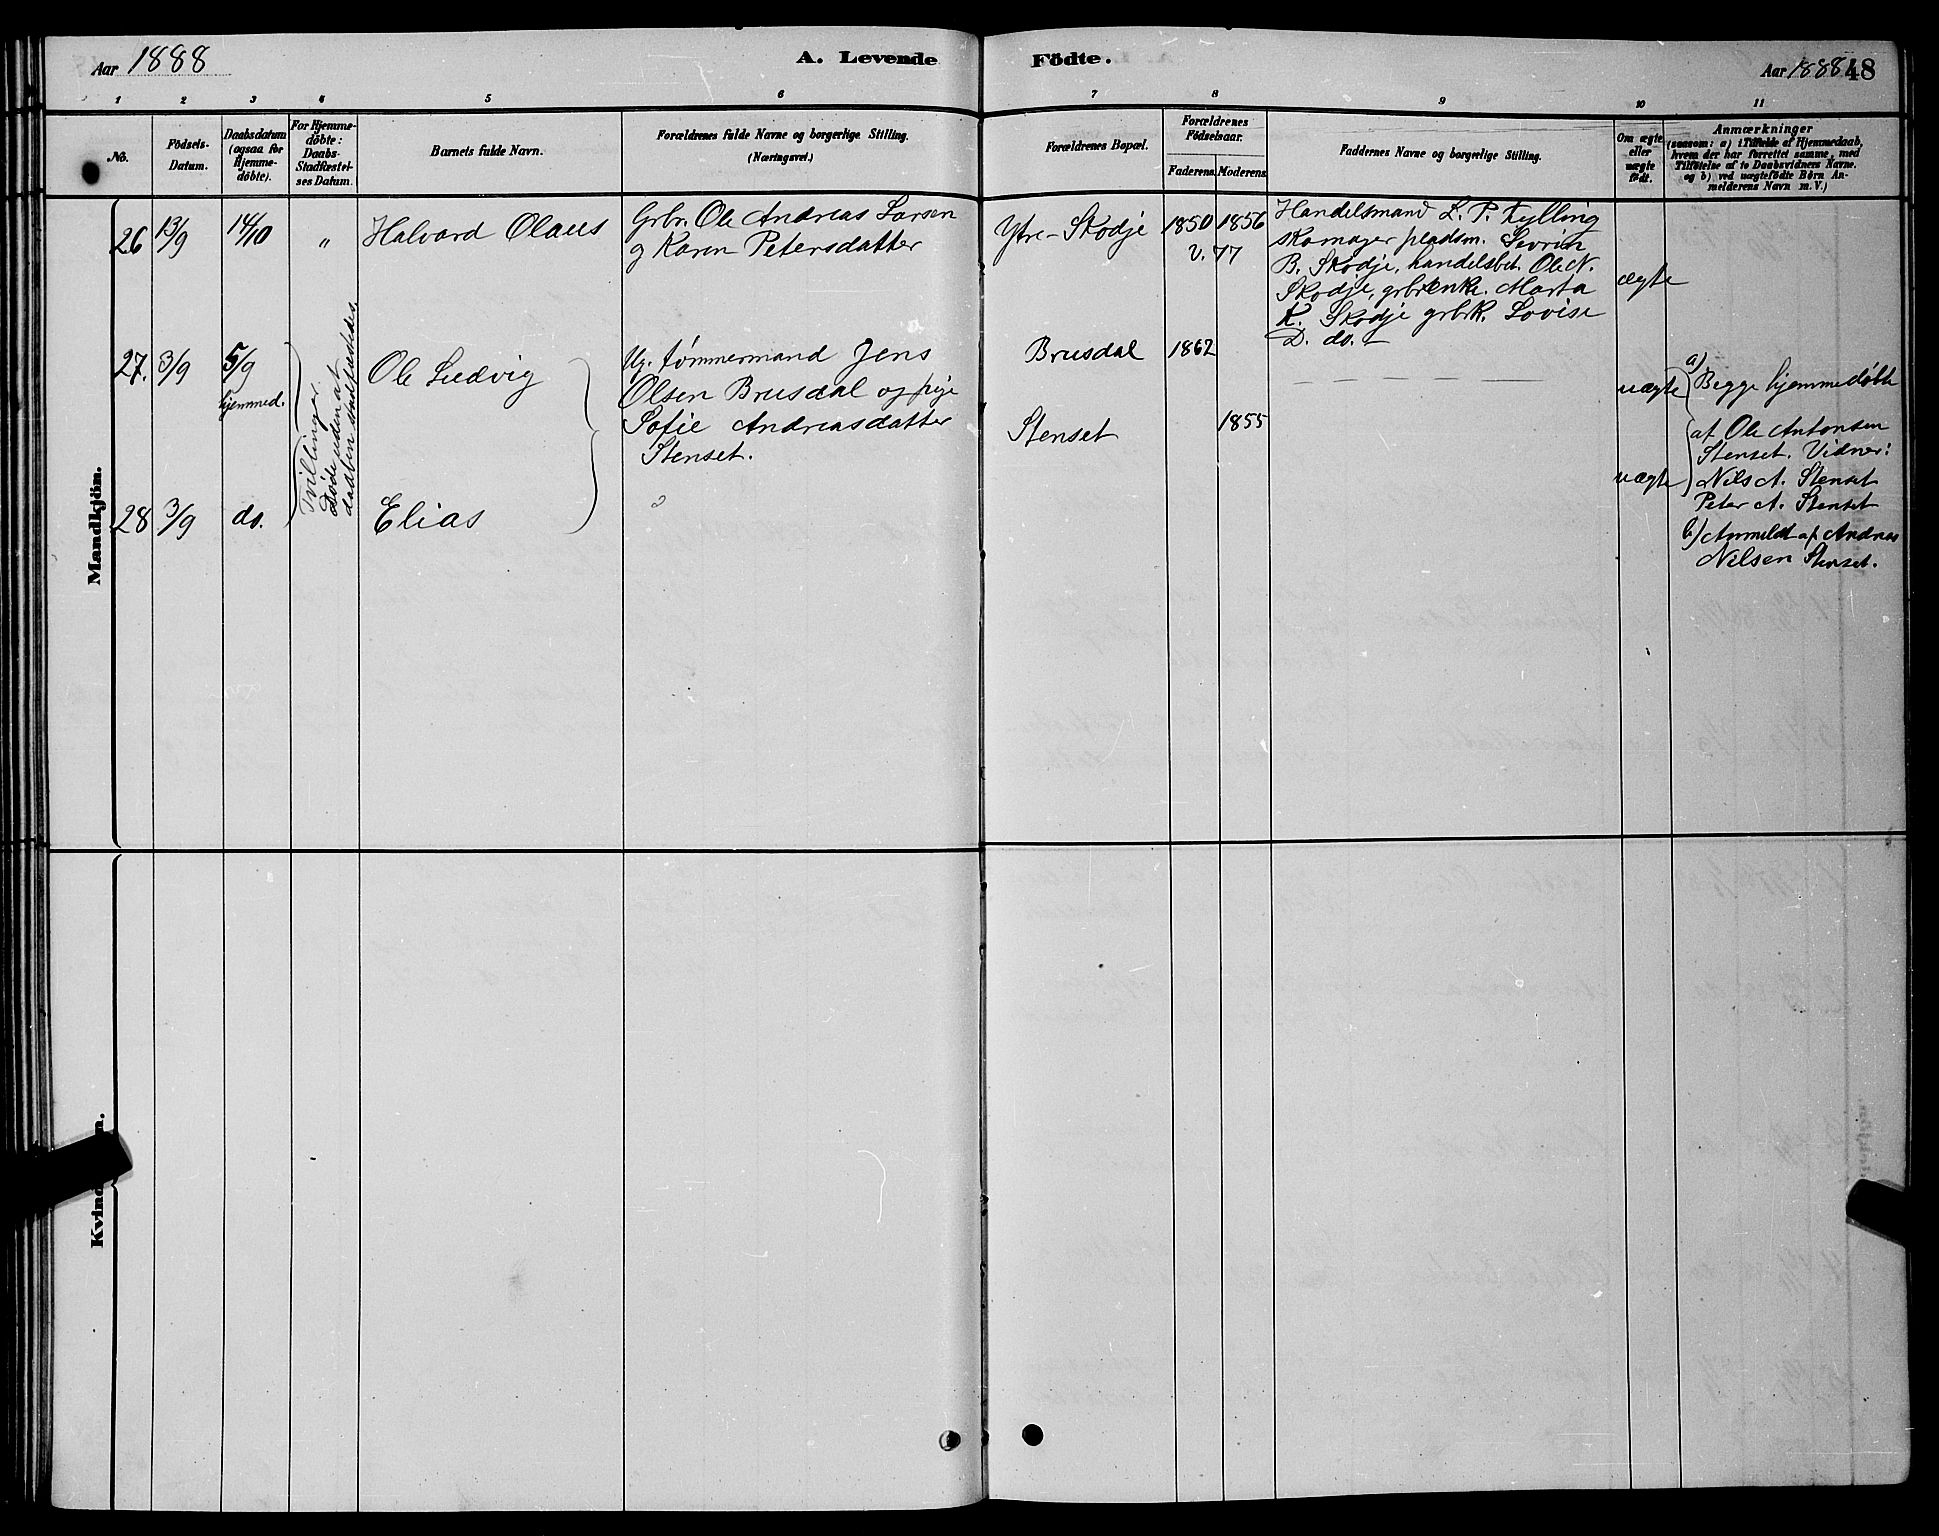 Aar 1888
A. Levende
Födte.
Aar 1888 48
1 2 3 4 5 6 7 8 9 10 11
No.
Födsels-
Datum.
Daabsdatum
(ogsaa for
Hjemme-
döbte).
For Hjemme-
döbte:
Daabs-
Stadfæstel-
ses Datum.
Barnets fulde Navn.
Forældrenes fulde Navne og borgerlige Stilling.
(Næringsvei.)
Forældrenes Bopæl.
Forældrenes
Födselsaar.
Faderens. Moderens.
Faddernes Navne og borgerlige Stilling.
Om ægte
eller
uægte
födt.
Anmærkninger
(saasom: a) i Tilfælde af Hjemmedaab,
hvem der har forrettet samme, med
Tilföielse af to Daabsvidners Navne.
og b) ved uægtefödte Börn An-
melderens Navn m. V.)
Mandkjön.
26 13/9 14/10 " Halvard Olaus
Grbr. Ole Andreas Larsen
og Karen Petersdatter
Ytre-Skodje 1850 1856
v. 77
Handelsmand L. P. Kylling
skomager pladsm. Sevrin
B. Skodje, handelsbet. Ole N.
Skodje, grbrenke. Marta
K. Skodje grbrk. Lovise
D. do.
ægte
27. 3/9 5/9
hjemmed.
Tvillinger.
Döde uden at
daaben stadfæstedes
Ole Ludvig
Ug. tømmermand Jens
Olsen Brusdal og pige
Sofie Andreasdatter
Stenset.
Brusdal 1862
Stenset 1855
uægte
uægte
a)
Begge hjemmedøbte
af Ole Antonsen
Stenset. Vidner:
Nils A. Stenset
Peter A. Stenset
b) Anmeldt af Andreas
Nilsen Stenset.
28 3/9 do. Elias
Kvind